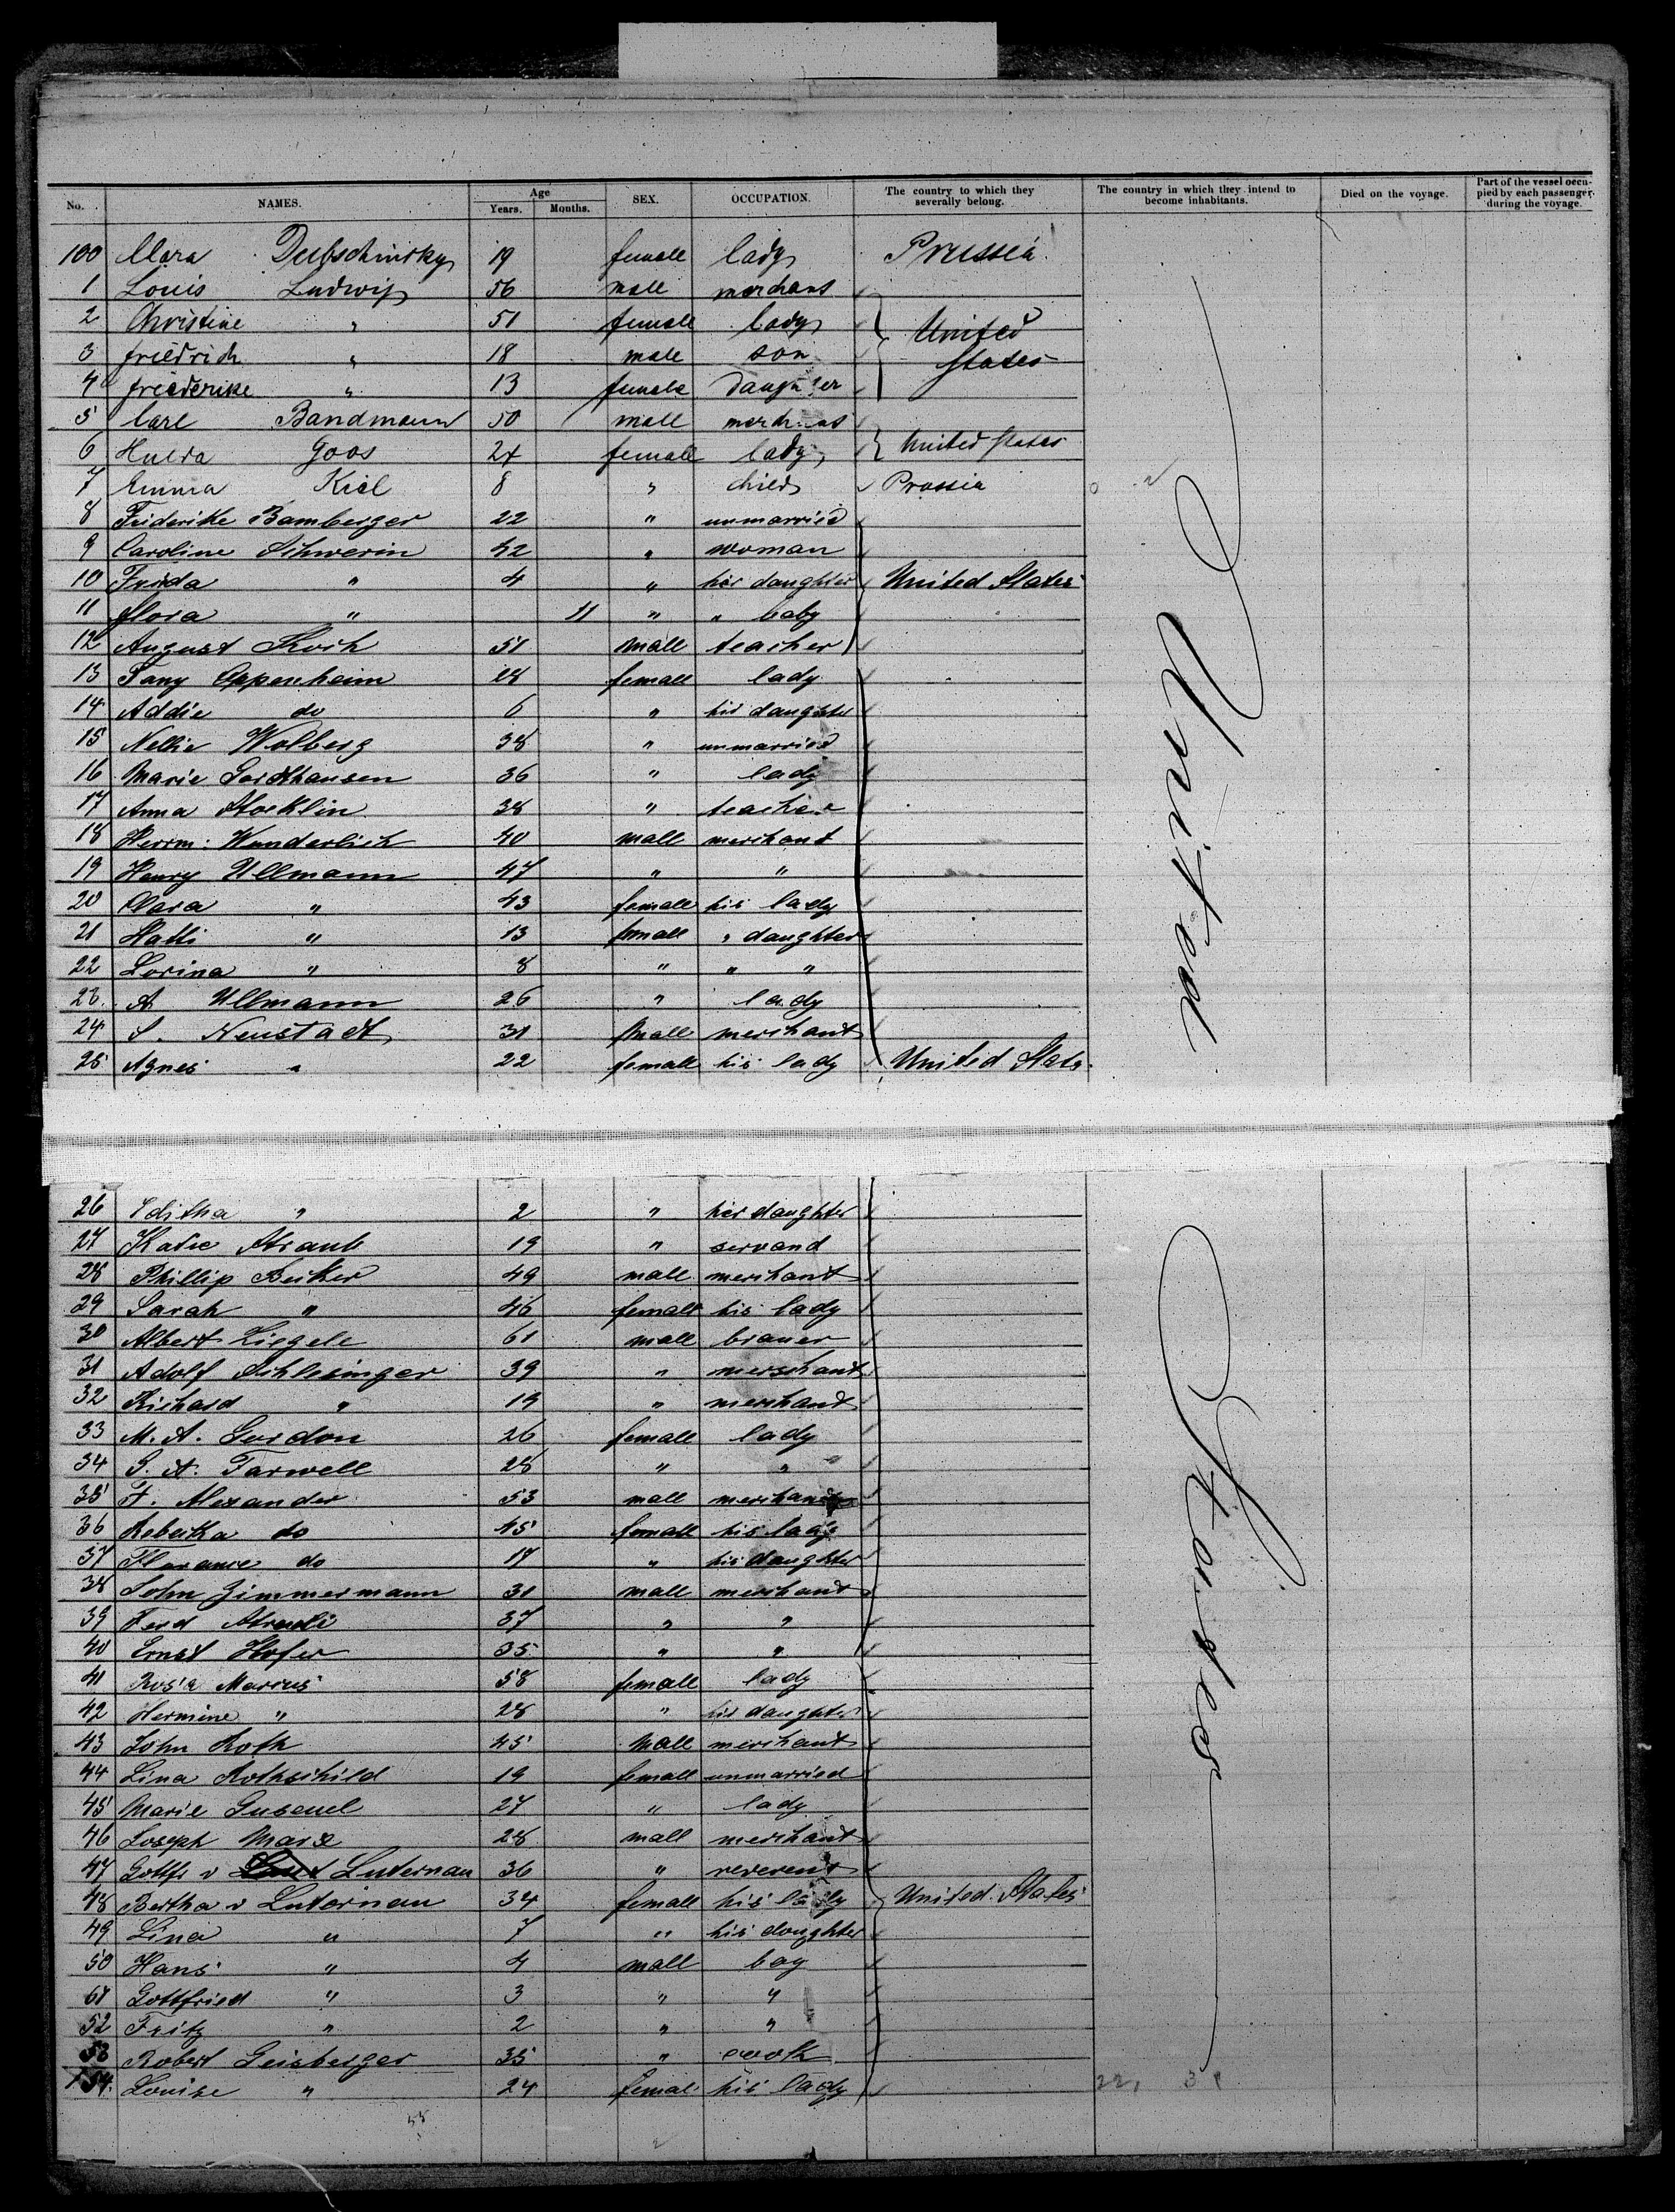 No. NAMES. Age Years. Months. SEX. OCCUPATION. The country to which they severally belong. The country in which they intend to become inhabitants. Died on the voyage. Part of the vessel occupied by each passenger during the voyage.
100 Clara Dubschinsky 19 female lady Prussia
1 Louis Ludwig 56 male merchant
2 Christine " 51 female lady United
3 friedrich " 18 male son States
4 friederike " 13 female daughter
5 Carl Bandmann 50 male merchant
6 Hulda Goos 24 female lady United States
7 Emma Kiel 8 " child Prussia
8 Friderike Bamberger 22 " unmarried
9 Caroline Schwerin 42 " woman
10 Frida " 4 " her daughter United States
11 flora " 11 " " baby
12 August Koch 51 male teacher
13 Fany Oppenheim 28 female lady
14 Addie do 6 " his daughter
15 Nellie Wolberg 38 " unmarried
16 Marie " 36 " lady
17 Anna Stocklin 38 " teacher
18 Herrm: Wunderlich 40 male merchant
19 Henry Ullmann 47 " "
20 Clara " 43 female his lady
21 Hatti " 13 female " daughter
22 Lorina " 8 " " "
23 A Ullmann 26 " lady
24 S. Neustadt 31 Male merchant
25 Agnes " 22 female his lady United States
United
26 Editha " 2 " her daughter
27 Katie Straub 19 " servand
28 Phillip Becker 49 male merchant
29 Sarah " 46 female his lady
30 Albert Ziegele 61 male brauer
31 Adolf Schlesinger 39 " merschant
32 Richard " 19 " merchant
33 M. A. Gordon 26 female lady
34 S. A. Farwell 28 " "
35 F. Alexander 53 male merchant
36 Rebecka do 45 female his lady
37 Florance do 17 " his daughter
38 John Zimmermann 31 male merchant
39 Ferd 37 " "
40 Ernst Hofer 35 " "
41 Rosa Marcus 58 female lady
42 Hermine " 28 " his daughter
43 John Roth 45 Male merchant
44 Lina Rothschild 19 female unmarried
45 Marie 27 " lady
46 Joseph Marx 28 male merchant
47 Gottfr v Luternau 36 " reverent
48 Bertha v Luternau 34 female his lady United States
49 Lina " 7 " his doughter
50 Hans " 4 male boy
51 Gottfried " 3 " "
52 Fritz " 2 " "
53 Robert Geisberger 35 " cook
54. Louise " 24 female his lady
States
55